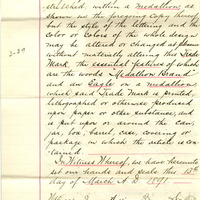 stretched, within a medallion, as
shown in the foregoing copy hereof
but the style of the lettering and the
color or colors of the whole design
may be altered or changed at pleasure
without materially altering this Trade
Mark, the essential features of which
are the words "Medallion Brand"
and an Eagle on a medallion
which said Trade Mark is printed,
lithographed or otherwise produced
upon paper or other substances, and
is put upon or around the can,
jar, box, barrel, case, covering or
package in which the article is
contained.
In Witness Whereof, we have hereunto
set our hands and seals this 13th
day of March A.D. 1891.